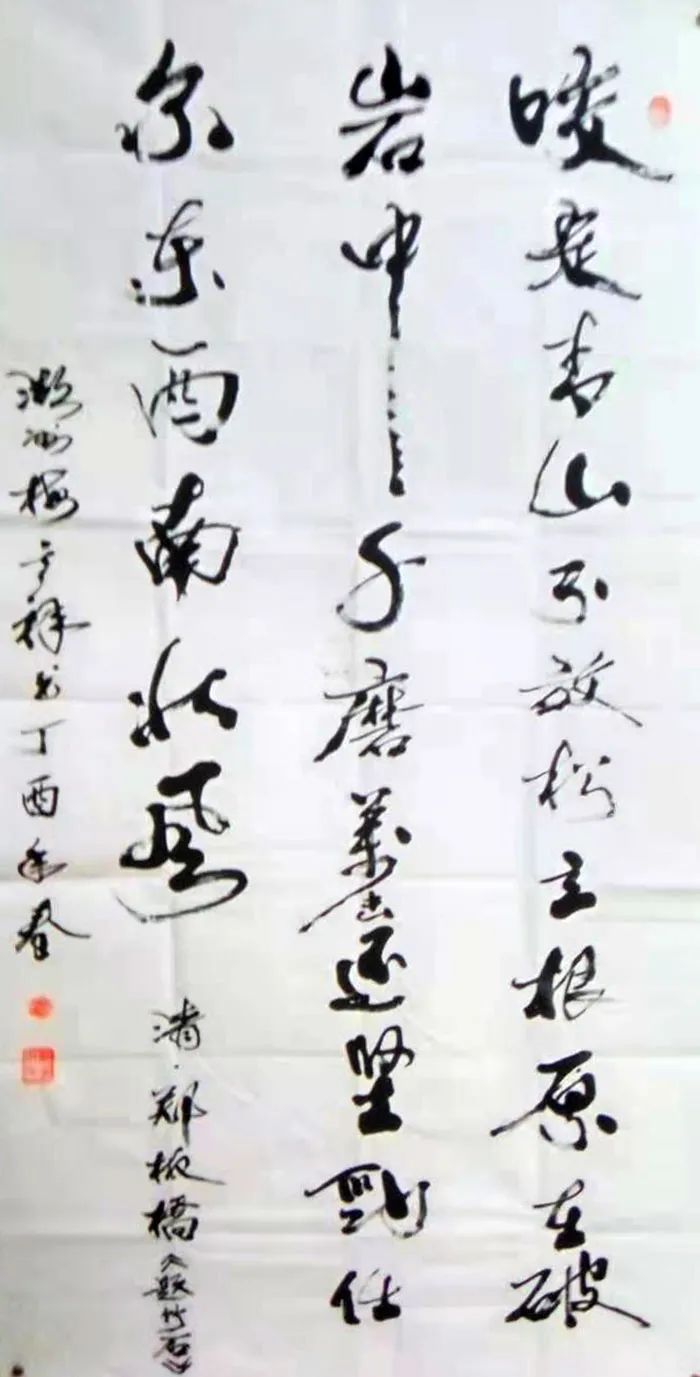 咬定青山不放松立根原在破
岩中千磨萬击还坚劲任
尔东西南北風
清·郑板橋《题竹石》
祥书丁酉年春